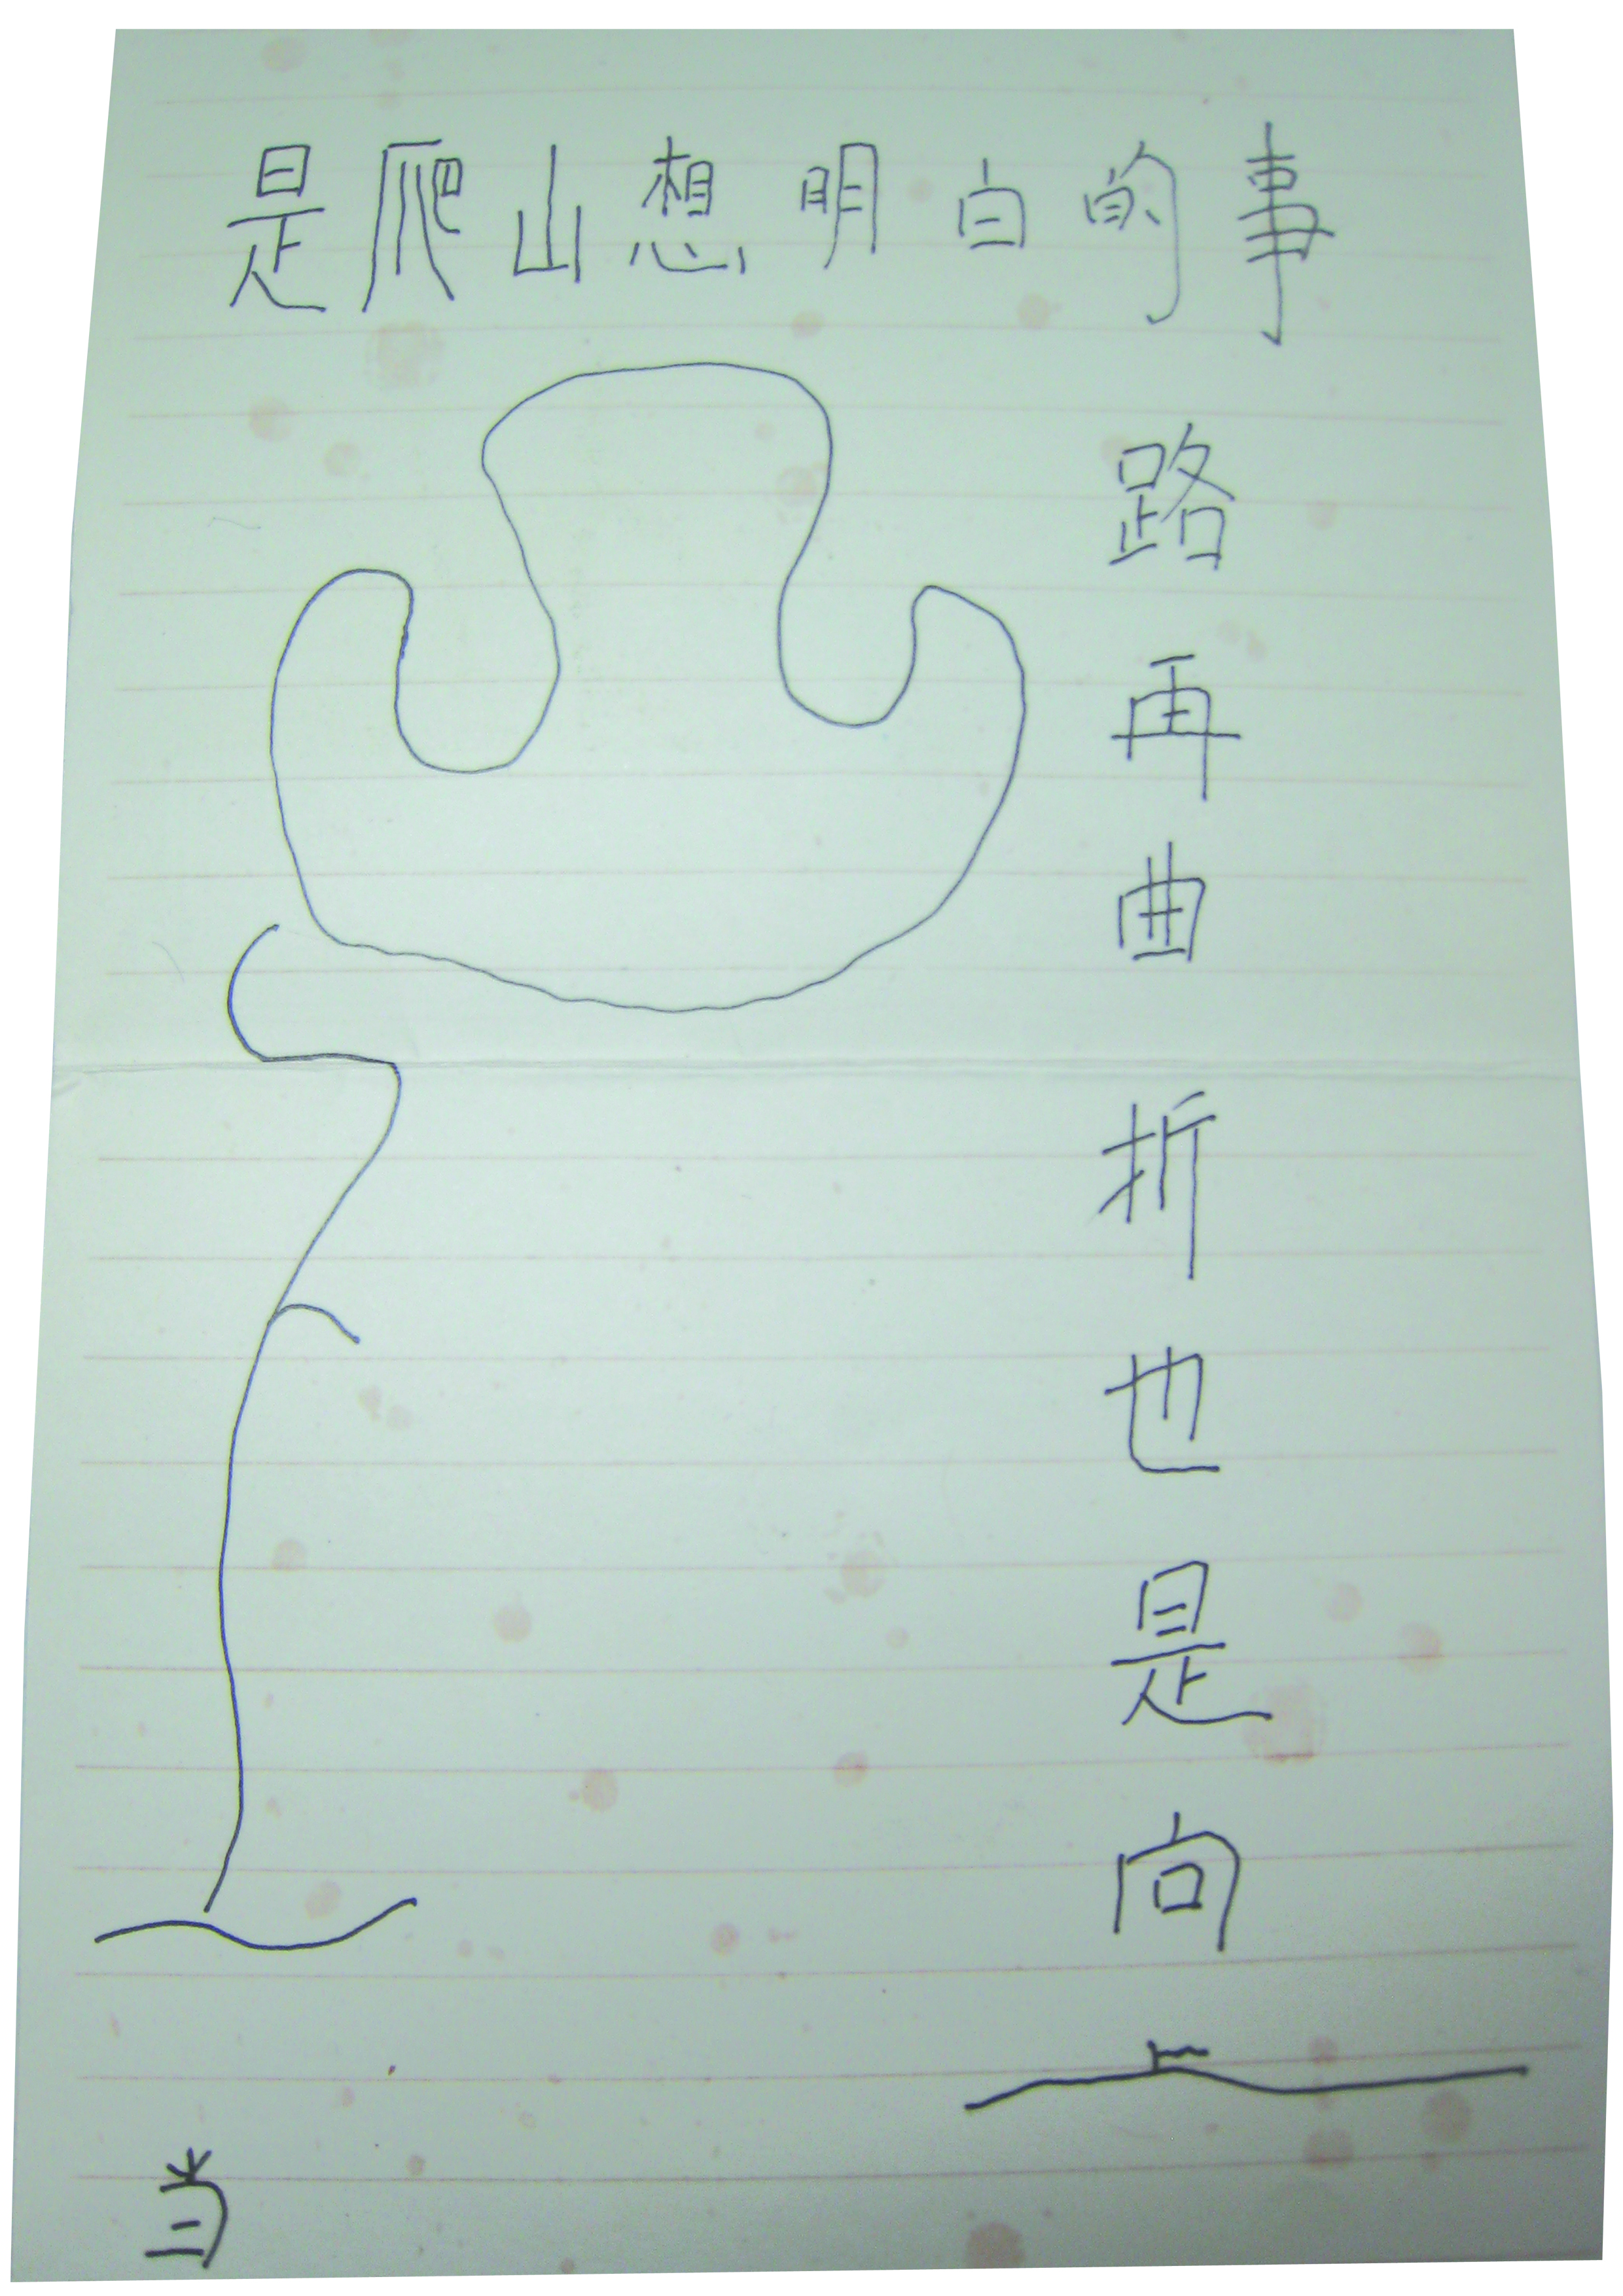 是爬山想明白的事
路再曲折也是向上
当